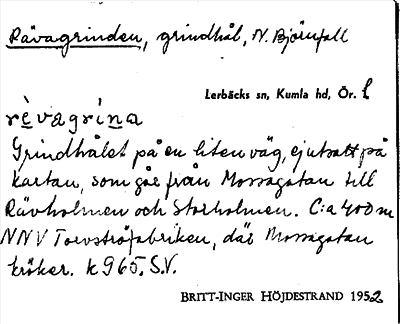 Rävagrinden, grindhål, N. Björnfall
Lerbäcks sn, Kumla hd, Ör. l
rèvagrína
Grindhålet på en liten väg, ej utsatt på
kartan, som går från Mossagatan till
Rävholmen och Storholmen. C:a 400 m
NNV Torvströfabriken, där Mossagatan
kröker. k 965. S.V.
BRITT-INGER HÖJDESTRAND 1952